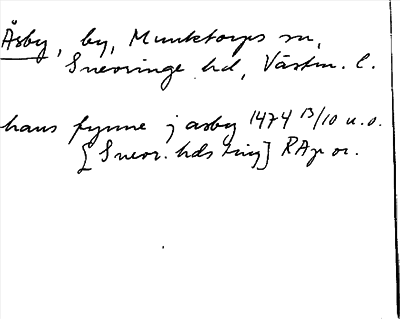 Åsby, by, Munktorps sn,
Snevringe hd, Västm. l.
hans fynne j asby 1474 13/10 u.o.
[Snevr. hds ting] RAp or.